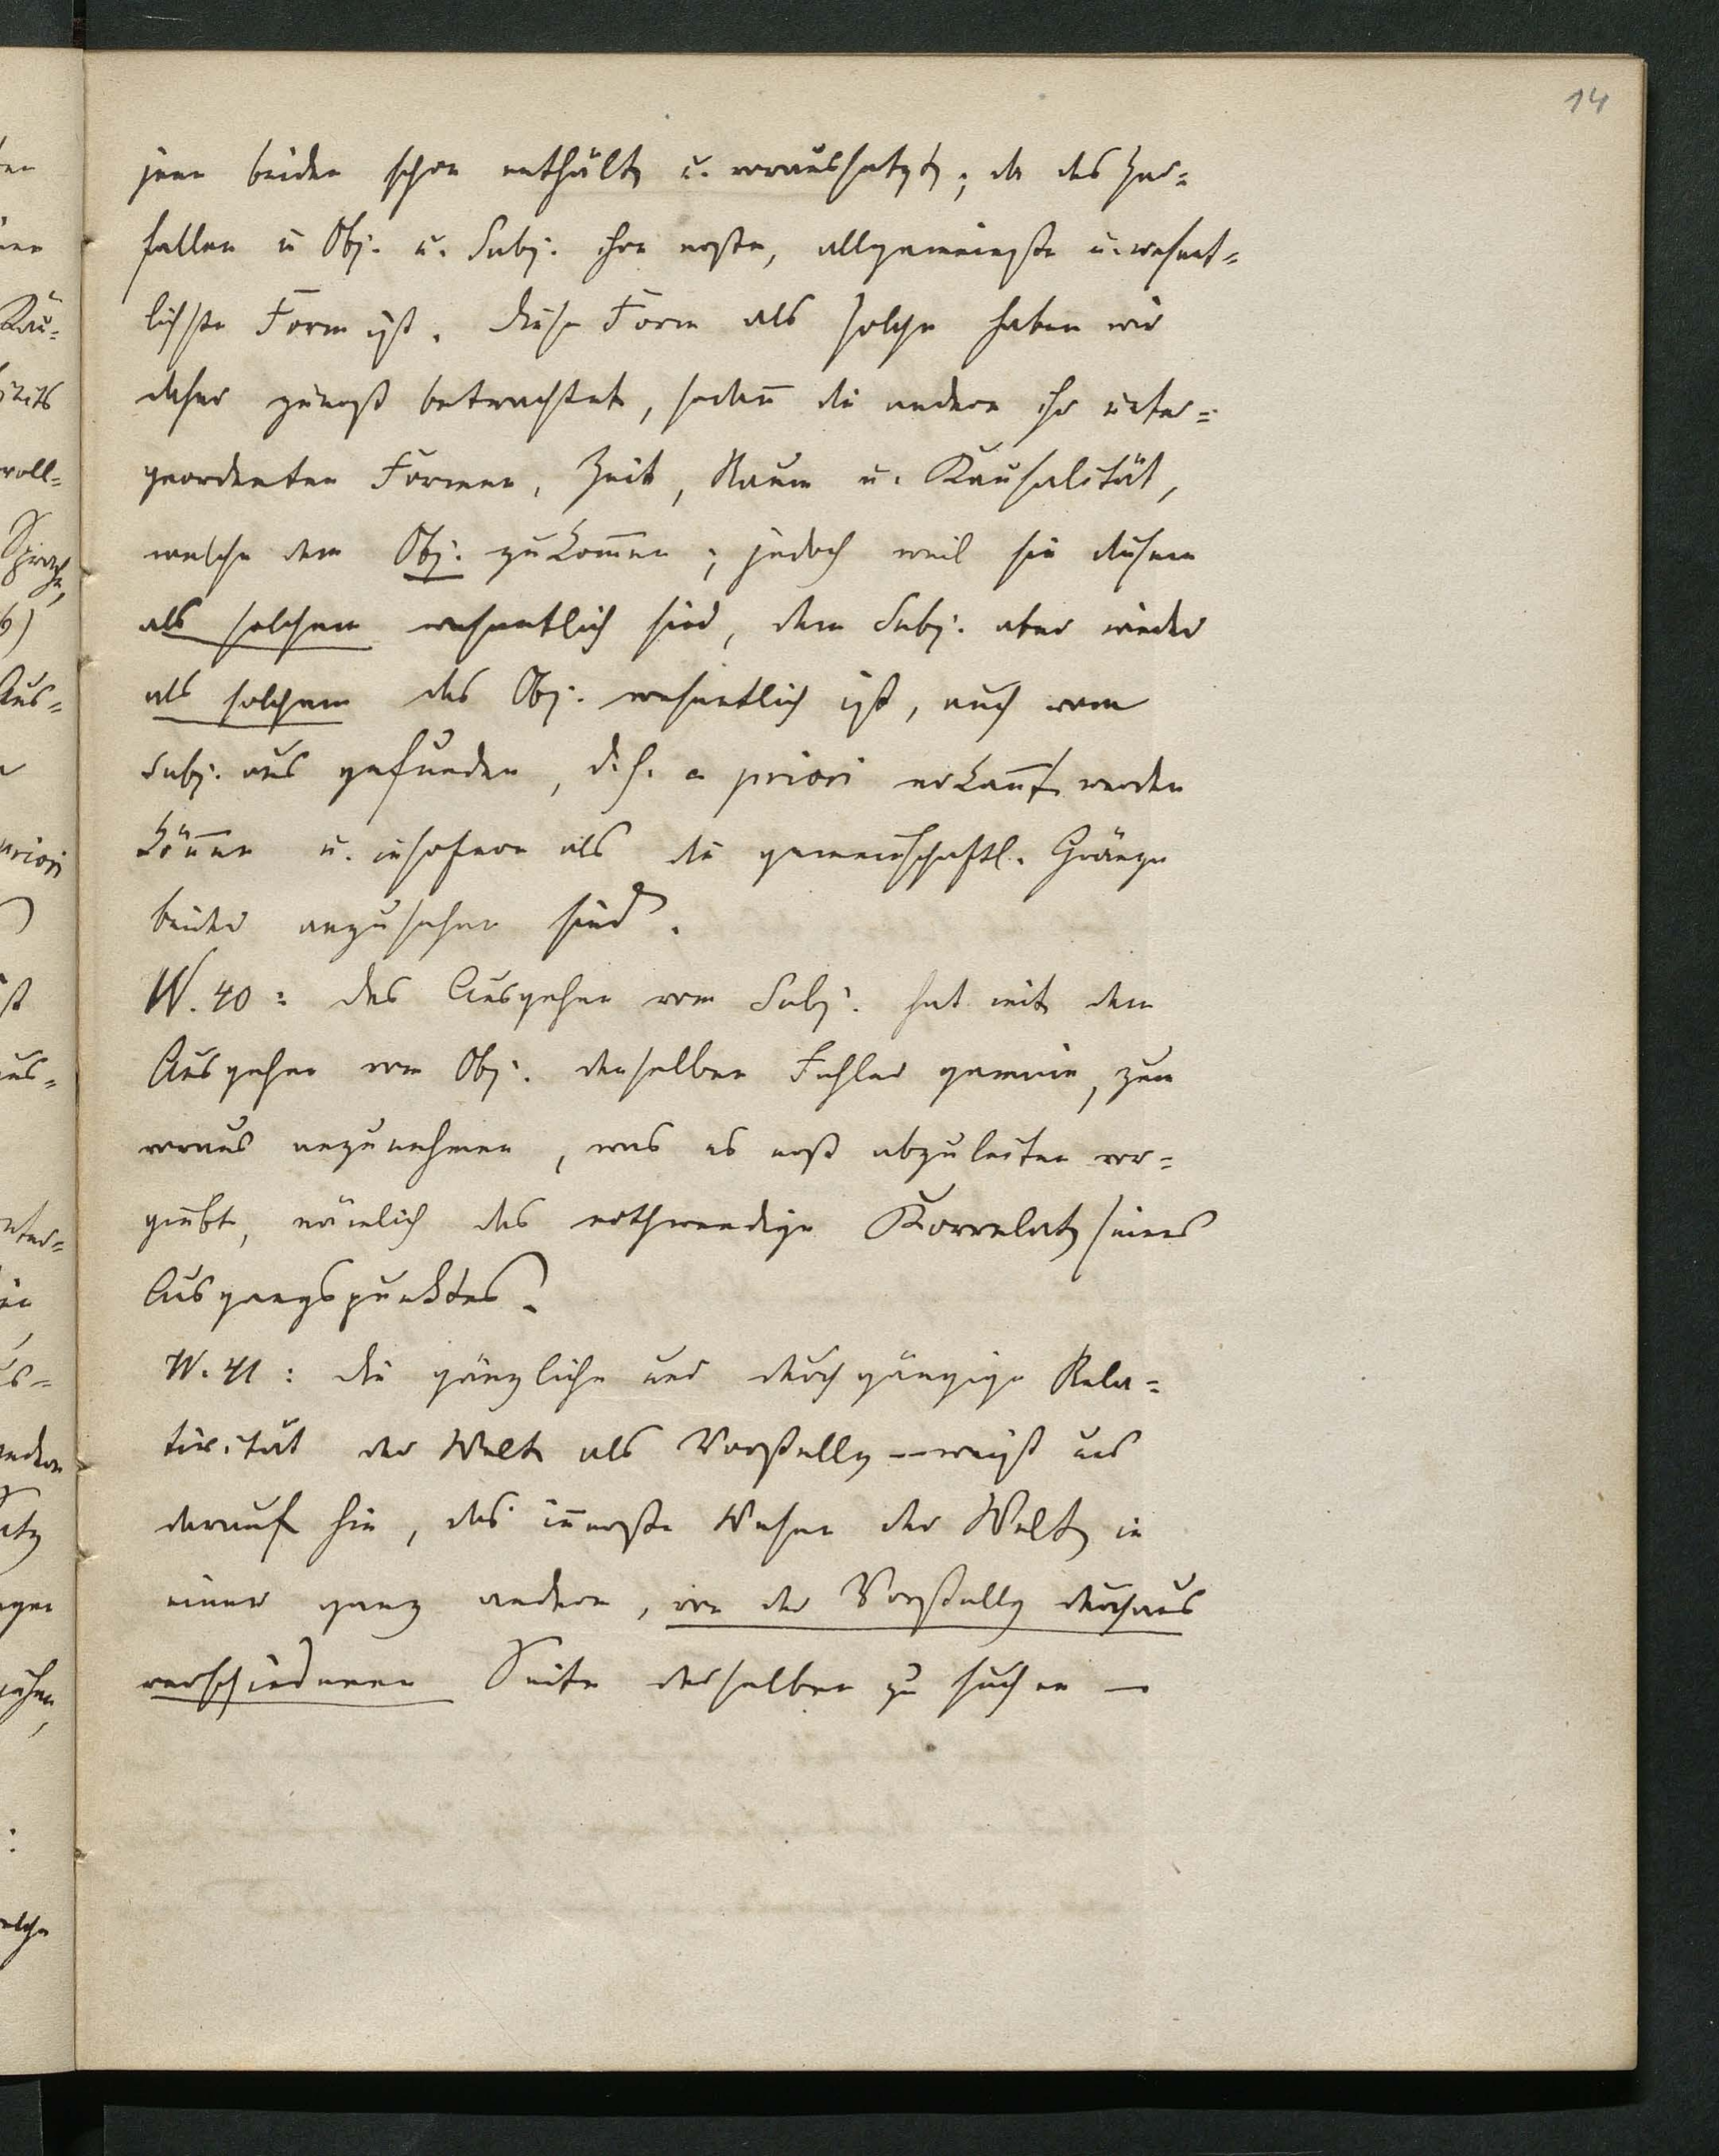 14
jene beiden schon enthält u. voraussetzt; da das Zer=
fallen in Obj. u. Subj. ihre erste, allgemeinste u. wesent=
lichste Form ist. Diese Form als solche haben wir
daher zunächst betrachtet, sodañ die andern ihr unter=
geordneten Formen, Zeit, Raum u. Kausalität,
welche dem Obj. zukom̄en; jedoch weil sie diesem
als solchem wesentlich sind, dem Subj. aber wieder
als solchem das Obj. wesentlich ist, auch vom
Subj. aus gefunden, d. h. a priori erkañt werden
köñen u. insofern als die gemeinschaftl. Gränze
beider anzusehen sind.
W. 40: das Ausgehen vom Subj. hat mit dem
Ausgehen vom Obj. denselben Fehler gemein, zum
voraus anzunehmen, was es erst abzuleiten vor=
giebt, nämlich das nothwendige Korrelat seines
Ausgangspunktes.
W. 41: die gänzliche und durchgängige Rela=
tivität der Welt als Vorstellg – weist uns
darauf hin, das iñerste Wesen der Welt in
einer ganz andern, von der Vorstellg durchaus
verschiedenen Seite derselben zu suchen —